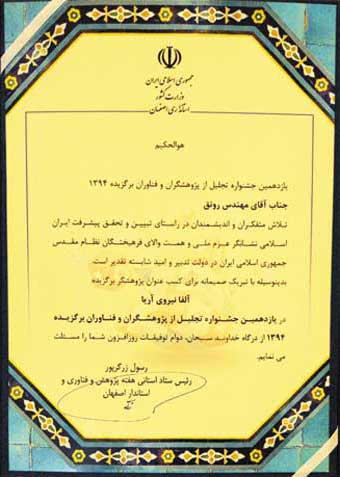 جمهوری اسلامی ایران
وزارت کشور
استانداری اصفهان
هوالحکیم
یازدهمین جشنواره تجلیل از پژوهشگران و فناوران برگزیده ۱۳۹۴
جناب آقای مهندس رونق
تلاش متفکران و اندیشمندان در راستای تبیین و تحقق پیشرفت ایران
اسلامی نشانگر عزم ملی و همت والای فرهیختگان نظام مقدس
جمهوری اسلامی ایران در دولت تدبیر و امید شایسته تقدیر است.
بدینوسیله با تبریک صمیمانه برای کسب عنوان پژوهشگر برگزیده
آلفا نیروی آریا
در یازدهمین جشنواره تجلیل از پژوهشگران و فناوران برگزیده
۱۳۹۴ از درگاه خداوند سبحان، دوام توفیقات روزافزون شما را مسئلت
می نمایم.
رسول زرگرپور
رئیس ستاد استانی هفته پژوهش و فناوری و
استاندار اصفهان